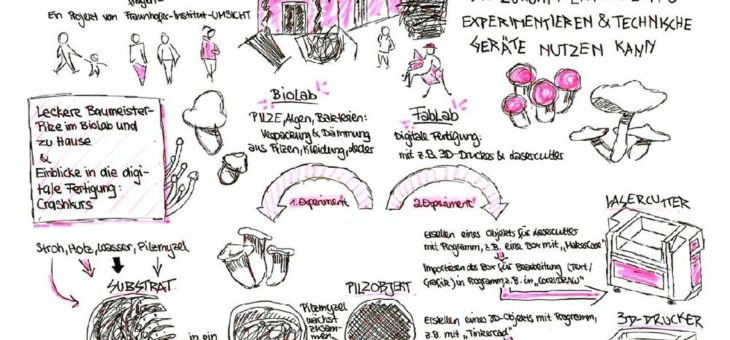 Ein Projekt von Fraunhofer-Institut-UMSICHT
EXPERIMENTIEREN & TECHNISCHE
GERÄTE NUTZEN KANN
BioLab
PILZE, Algen, Bakterien:
Verpackung & Dämmung
aus Pilzen, Kleidung, Leder
FabLab
Digitale Fertigung:
mit z.B. 3D-Drucker & Lasercutter
Leckere Baumeister-
Pilze im BioLab und
zu Hause
&
Einblicke in die digi-
tale Fertigung:
Crashkurs
1. Experiment
2. Experiment
LASERCUTTER
Erstellen eines Objekts für Lasercutter
mit Programm, z.B. eine Box mit „MakerCase“
Importieren der Box für Bearbeitung (Text/
Grafik) in Programm z.B. in „CorelDRAW“
Stroh, Holz, Wasser, Pilzmyzel
SUBSTRAT
in ein
Pilzmyzel
wächst
zusam-
men
PILZOBJEKT
Erstellen eines 3D-Objekts mit Programm,
z.B. mit „Tinkercad“
3D-DRUCKER